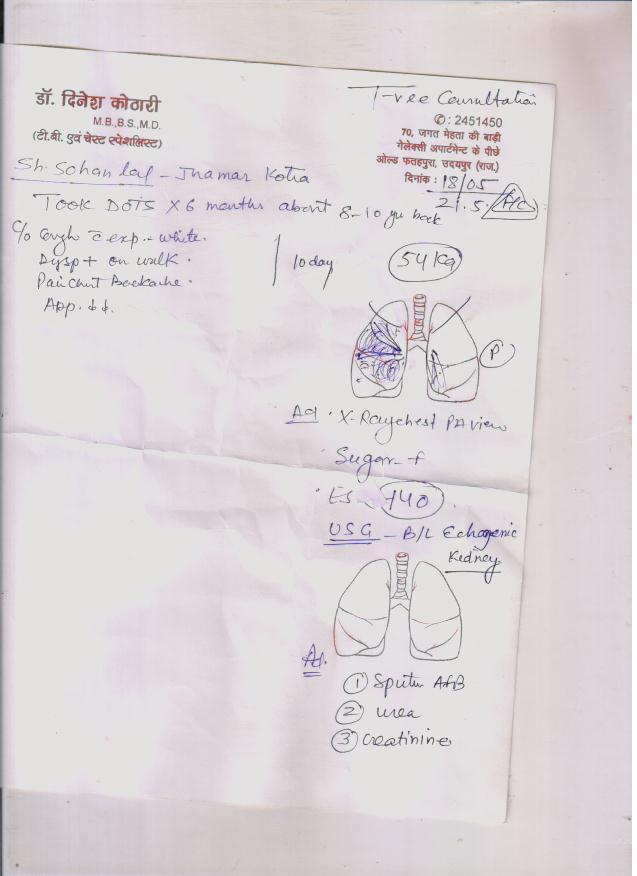 Free Consultation
डॉ. दिनेश कोठारी
M.B.,B.S.,M.D.
(टी.बी. एवं चेस्ट स्पेशलिस्ट)
✆ : 2451450
70, जगत मेहता की बाड़ी
गेलेक्सी अपार्टमेन्ट के पीछे
ओल्ड फतहपुरा, उदयपुर (राज.)
दिनांक : 18/05
21.5.
Sh. Sohan lal - Jhamar Kotra
Took DOTS x 6 months about 8-10 yr back
C/o Cough c exp. - white.
Dysp + on walk.
Pain chest Backache.
App. ↓↓.
10 day
54 Kg
P
Ad . X-Ray chest PA view
Sugar - f
ES 140
USG - B/L Echogenic
Kidney
Ad.
1 Sputum AFB
2 urea
3 creatinine